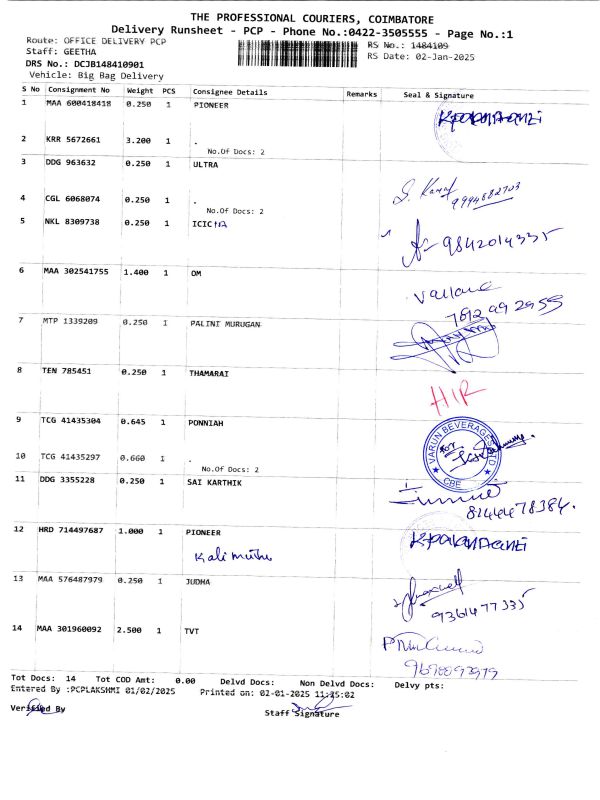 THE PROFESSIONAL COURIERS, COIMBATORE
Delivery Runsheet - PCP - Phone No.:0422-3505555 - Page No.:1
Route: OFFICE DELIVERY PCP
RS No.: 1484109
Staff: GEETHA
RS Date: 02-Jan-2025
DRS No.: DCJB148410901
Vehicle: Big Bag Delivery
S No Consignment No Weight PCS Consignee Details Remarks Seal & Signature
1 MAA 600418418 0.250 1 PIONEER
2 KRR 5672661 3.200 1 .
No.Of Docs: 2
3 DDG 963632 0.250 1 ULTRA
4 CGL 6068074 0.250 1 .
9994882703
No.Of Docs: 2
5 NKL 8309738 0.250 1 ICIC
9842014335
6 MAA 302541755 1.400 1 OM
7 MTP 1339209 0.250 1 PALINI MURUGAN
8 TEN 785451 0.250 1 THAMARAI
9 TCG 41435304 0.645 1 PONNIAH
VARUN BEVERAGES LTD
CBE
10 TCG 41435297 0.660 1 .
No.Of Docs: 2
11 DDG 3355228 0.250 1 SAI KARTHIK
12 HRD 714497687 1.000 1 PIONEER
Kali muthu
13 MAA 576487979 0.250 1 JUDHA
9361477335
14 MAA 301960092 2.500 1 TVT
Tot Docs: 14 Tot COD Amt: 0.00 Delvd Docs: Non Delvd Docs: Delvy pts:
Entered By :PCPLAKSHMI 01/02/2025 Printed on: 02-01-2025 11:25:02
Verified By
Staff Signature